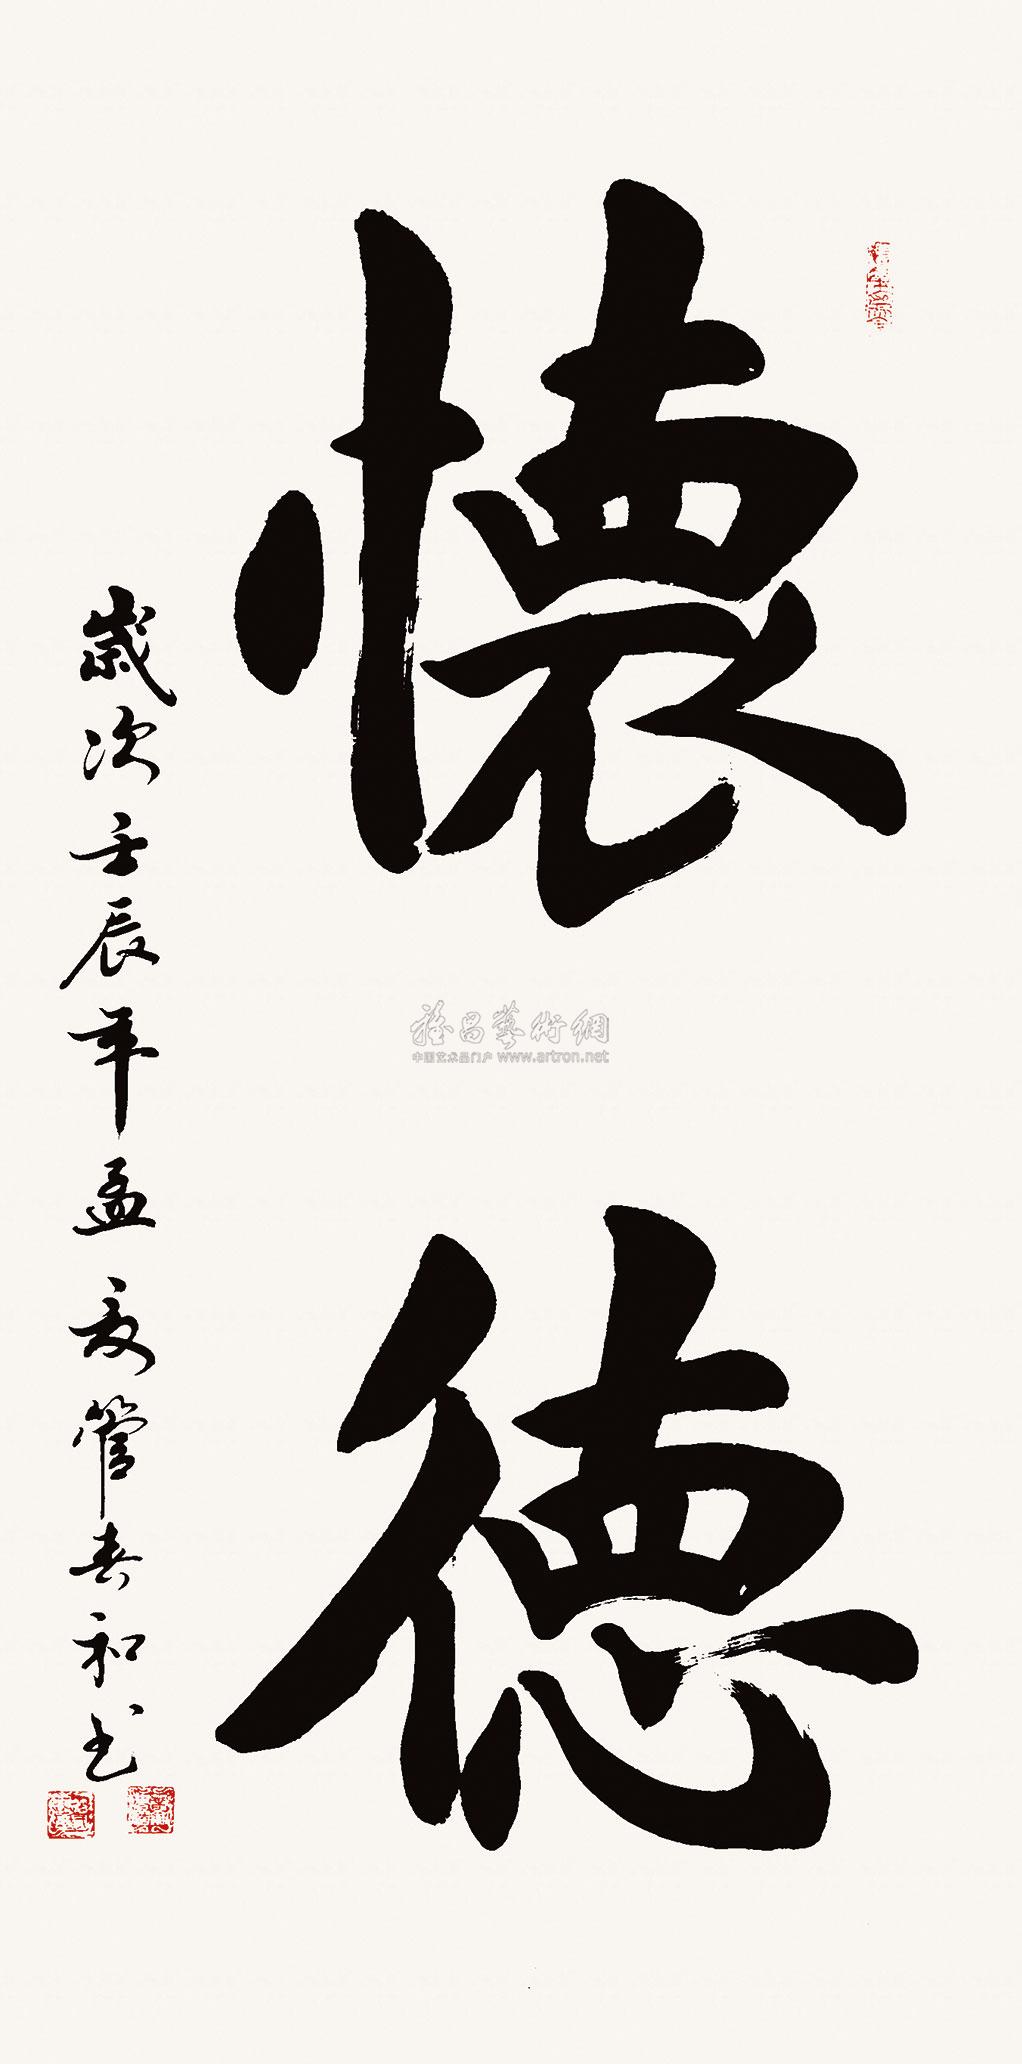 懷
德
歲次壬辰年孟夏管春和书
雅昌藝術網
中国艺术品门户 www.artron.net